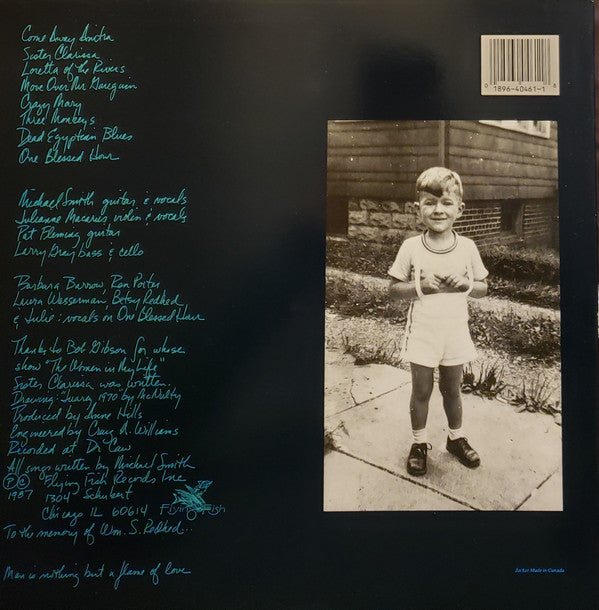 Come Away Anitra
Sister Clarissa
Loretta of the Rivers
Move Over Mr Gauguin
Crazy Mary
Three Monkeys
Dead Egyptian Blues
One Blessed Hour
Michael Smith guitar & vocals
Julianne Macarus violin & vocals
Pat Fleming guitar
Larry Gray bass & cello
Barbara Barrow, Ron Porter
Laura Wasserman, Betsy Redhed
& Julie: vocals on One Blessed Hour
Thanks to Bob Gibson for whose
show "The Women in My Life"
Sister Clarissa was written.
Drawing: "Juarez, 1970 by McNulty
Produced by Anne Hills
Engineered by Craig A. Williams
Recorded at Dr Caw
All songs written by Michael Smith
Ⓟ © Flying Fish Records Inc
1987 1304 Schubert
Chicago IL 60614
Flying Fish
To the memory of Wm. S. Redhed...
Man is nothing but a flame of love
0 1896-40461-1 8
Jacket Made in Canada